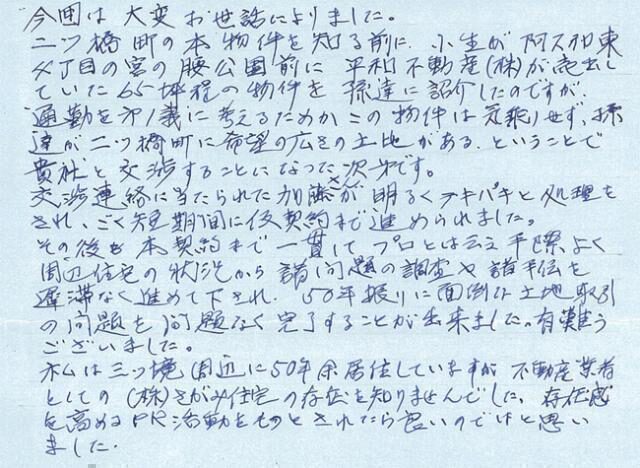 今回は大変お世話になりました。
二ツ橋町の本物件を知る前に、小生が阿久和東
4丁目の宮の腰公園前に平和不動産(株)が売出し
ていた65坪程の物件を孫達に紹介したのですが、
通勤を第1義に考えるためかこの物件は気乗りせず、孫
達が二ツ橋町に希望の広さの土地がある、ということで
貴社と交渉することになった次第です。
交渉連絡に当たられた加藤さんが明るくテキパキと処理を
され、ごく短期間に仮契約まで進められました。
その後も本契約まで一貫して、プロとは云え手際よく
周辺住宅の状況から諸問題の調査や諸手伝を
遅滞なく進めて下され、50年振りに面倒な土地取引
の問題を問題なく完了することが出来ました。有難う
ございました。
私は三ツ境周辺に50年余居住していますが不動産業者
としての(株)さがみ住宅の存在を知りませんでした。存在感
を高めるPR活動をもっとされたら良いのではと思い
ました。